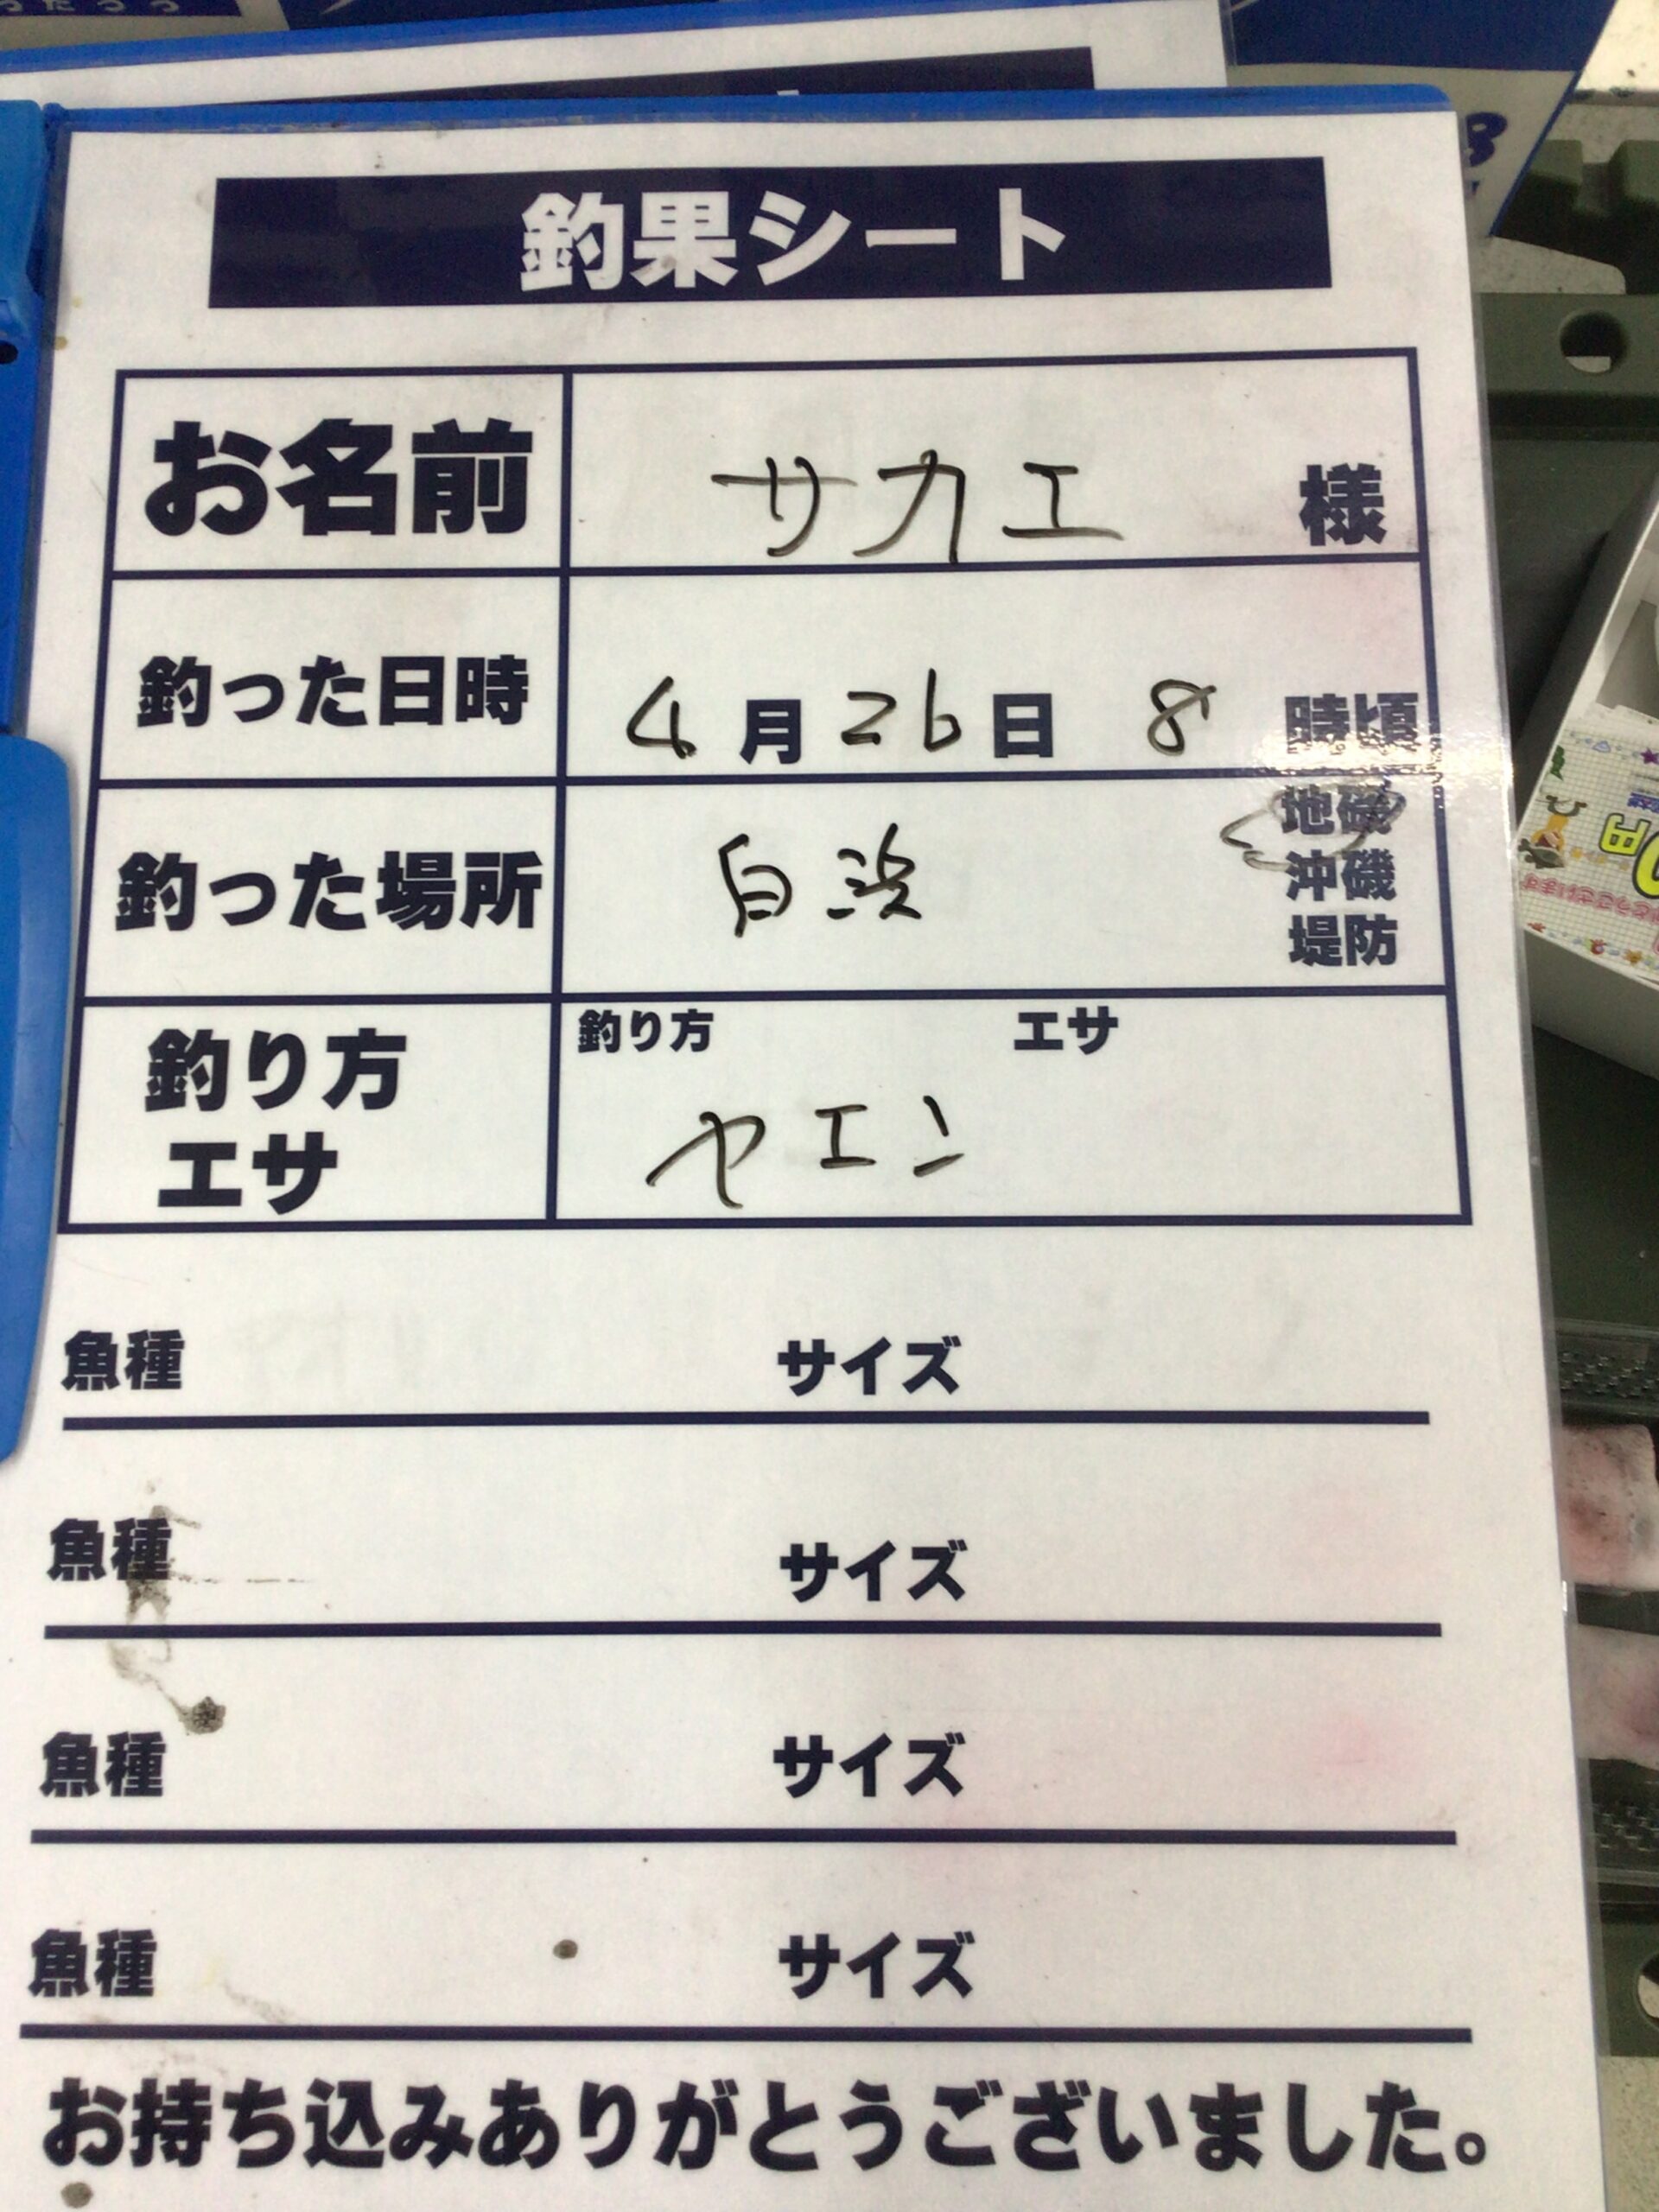 釣果シート
お名前 サカエ 様
釣った日時 4月26日 8時頃
釣った場所 白浜 地磯
沖磯
堤防
釣り方 エサ
釣り方
エサ
ヤエン
魚種 サイズ
魚種 サイズ
魚種 サイズ
魚種 サイズ
お持ち込みありがとうございました。